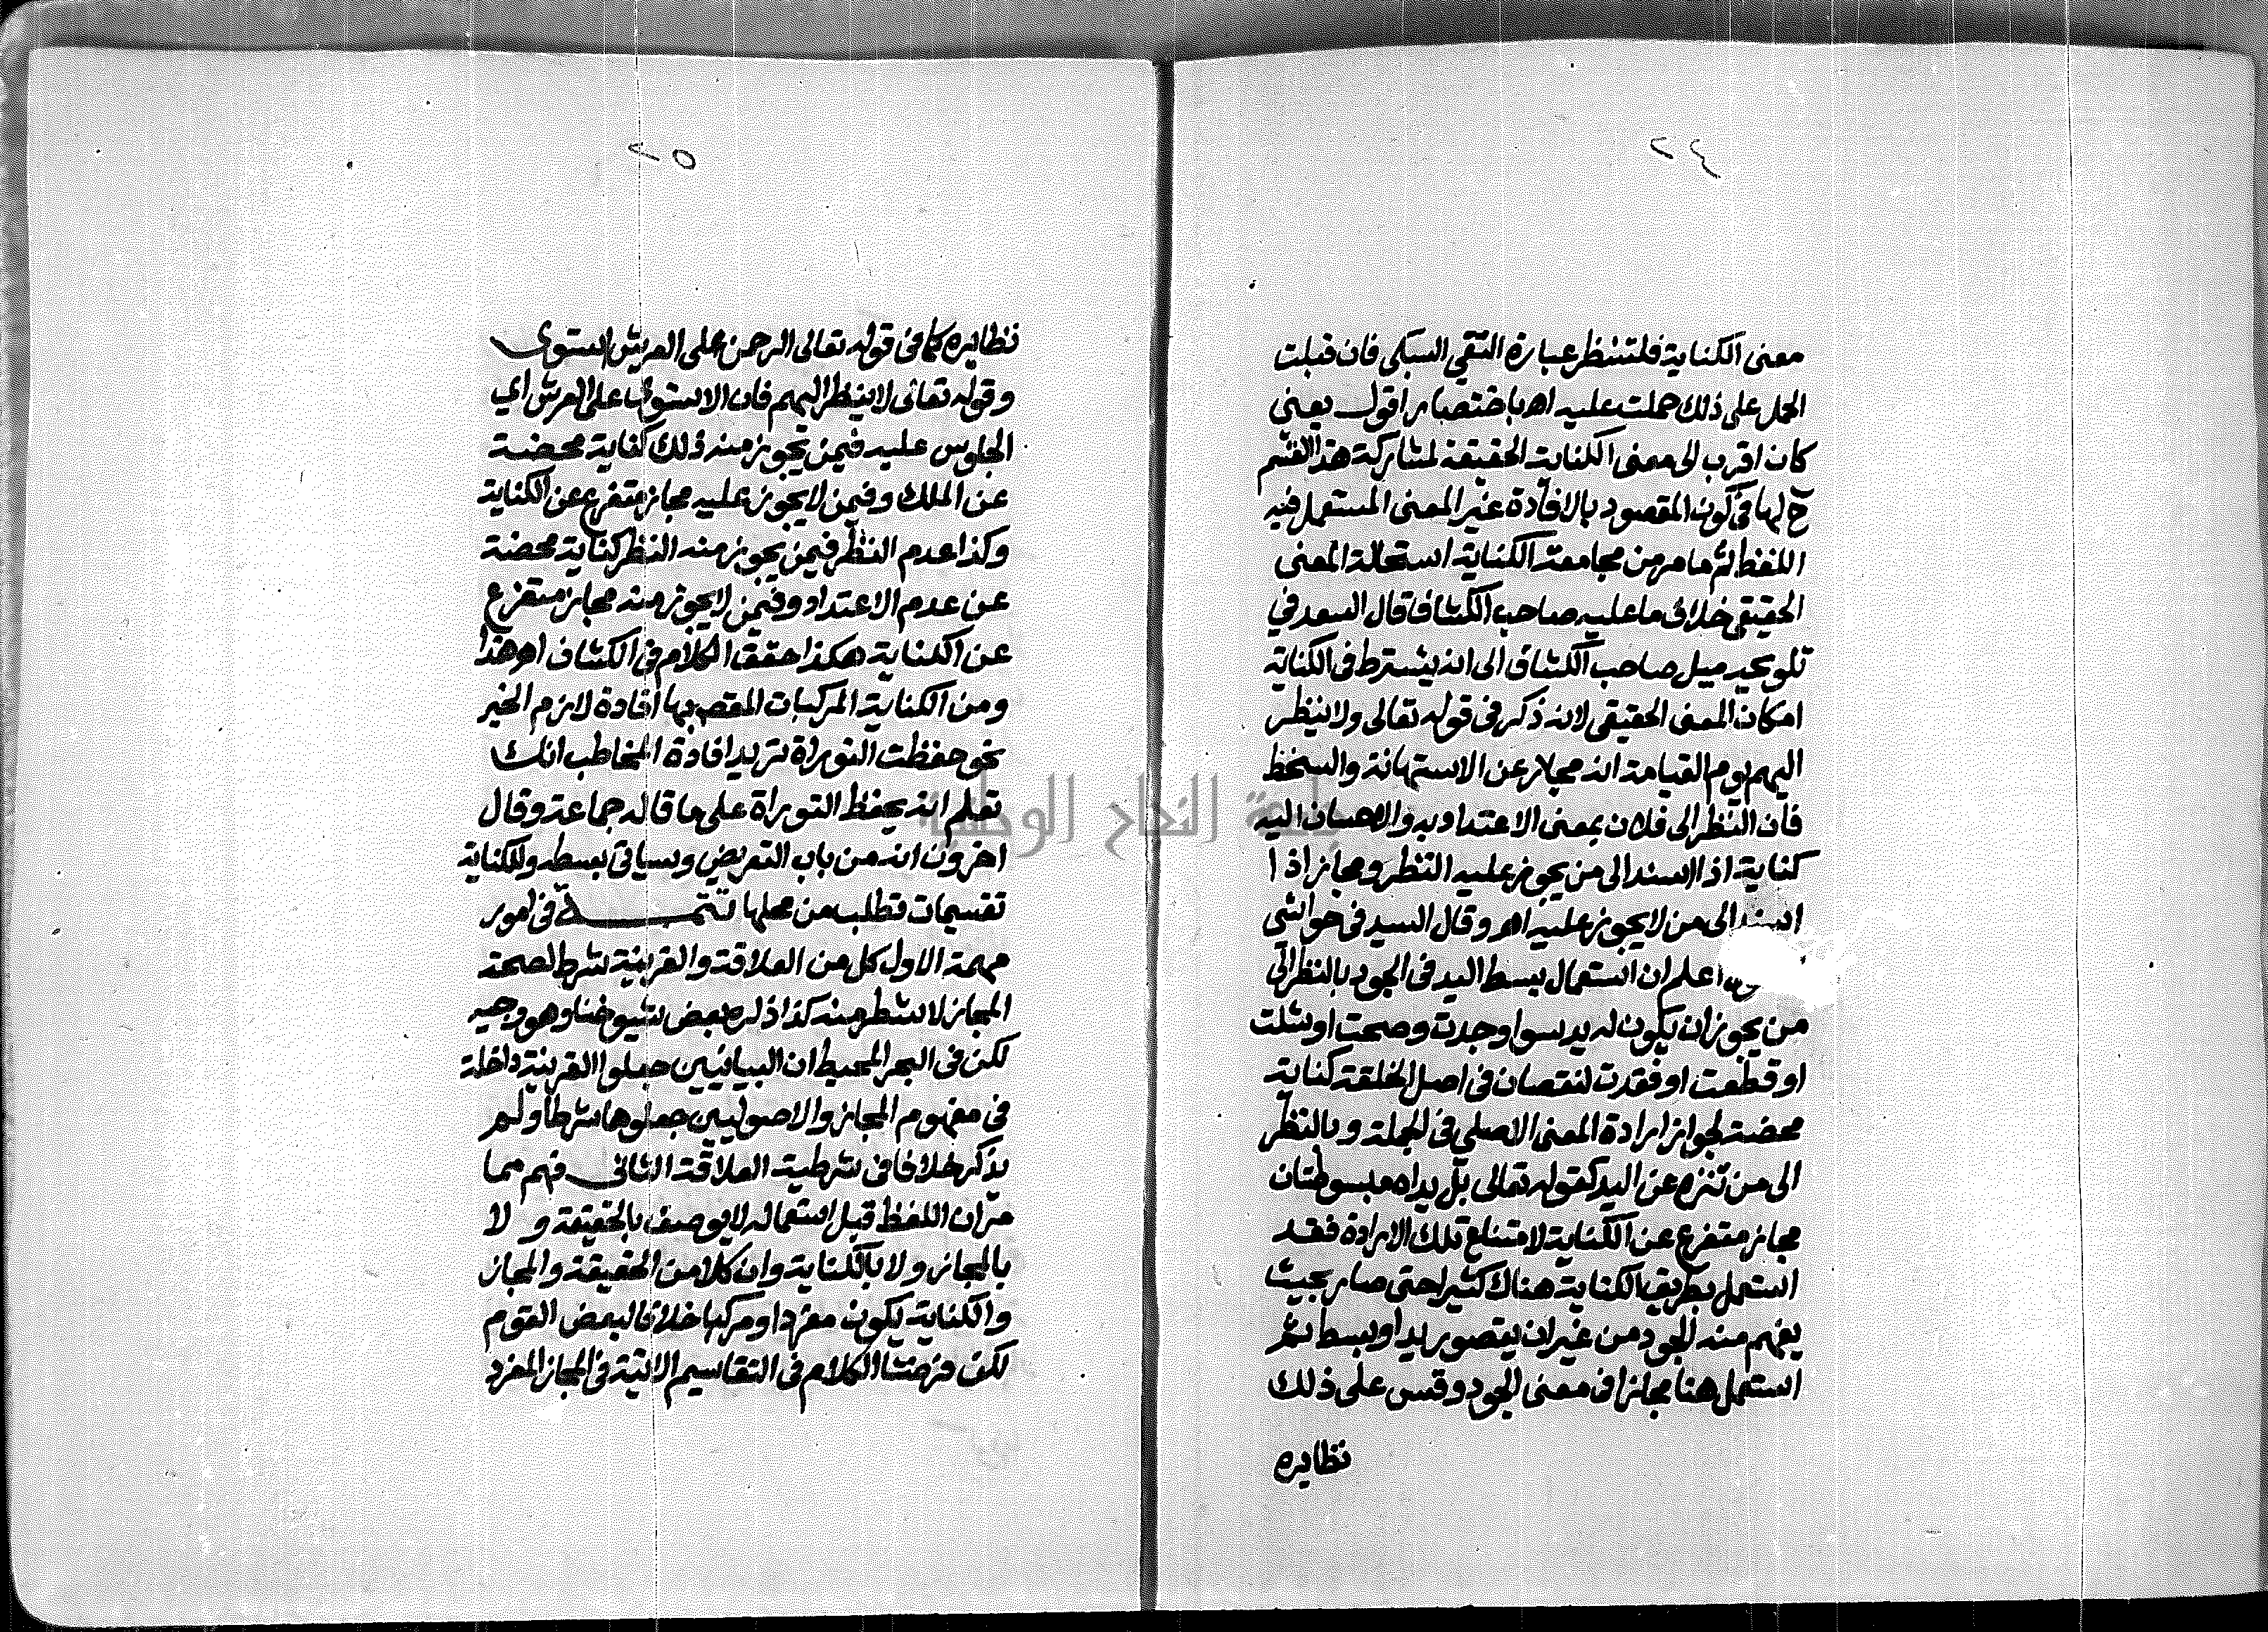 ٢٤
معنى الكناية فلتنظر عبارة التقي السبكي فان قبلت
الحمل على ذلك حملت عليه اهـ باختصار اقول يعنى
كان اقرب الى معنى الكناية الحقيقة لمشاركة هذا القسم
ح لها فى كون المقصود بالافادة غير المعنى المستعمل فيه
اللفظ ثم ما مر من مجامعة الكناية استحالة المعنى
الحقيقي خلاف ما عليه صاحب الكشاف قال السعد في
تلويحه ميل صاحب الكشاف الى انه يشترط فى الكناية
امكان المعنى الحقيقى لانه ذكر فى قوله تعالى ولا ينظر
اليهم يوم القيامة انه مجاز عن الاستهانة والسخط
فان النظر الى فلان بمعنى الاعتداد به والاحسان اليه
كناية اذا اسند الى من يجوز عليه النظر ومجاز اذا
اسند الى من لا يجوز عليه اهـ وقال السيد فى حواشى
اعلم ان استعمال بسط اليد فى الجود بالنظر الى
من يجوز ان يكون له يد سوا وجدت وصحت او شلت
او قطعت او فقدت لنقصان فى اصل الخلقة كناية
محضة لجواز ارادة المعنى الاصلي فى الجملة وبالنظر
الى من تنزه عن اليد كقوله تعالى بل يداه مبسوطتان
مجاز متفرع عن الكناية لامتناع تلك الارادة فقد
استعمل بطريق الكناية هناك كثيرا حتى صار بحيث
يفهم منه الجود من غير ان يتصور يد او بسط ثم
استعمل هنا مجازا فى معنى الجود وقس على ذلك
نظايره
٢٥
نظايره كما فى قوله تعالى الرحمن على العرش استوى
وقوله تعالى لا ينظر اليهم فان الاستوا على العرش اي
الجلوس عليه فيمن يجوز منه ذلك كناية محضة
عن الملك وفيمن لا يجوز عليه مجاز متفرع عن الكناية
وكذا عدم النظر فيمن يجوز منه النظر كناية محضة
عن عدم الاعتداد وفيمن لا يجوز منه مجاز متفرع
عن الكناية هكذا حقق الكلام فى الكشاف اهـ هذا
ومن الكناية المركبات المقصد بها افادة لازم الخبر
نحو حفظت التوراة تريد افادة المخاطب انك
تعلم انه يحفظ التوراة على ما قاله جماعة وقال
اخرون انه من باب التعريض وسياتى بسطه وللكناية
تقسيمات تطلب من محلها تتمة فى امور
مهمة الاول كل من العلاقة والقرينة شرط لصحة
المجاز لا شطر منه كذا ذكره بعض شيوخنا وهو وجيه
لكن فى البحر المحيط ان البيانيين جعلوا القرينة داخلة
فى مفهوم المجاز والاصوليين جعلوها شرطا ولم
يذكر خلافا فى شرطية العلاقة الثانى فهم مما
مر ان اللفظ قبل استعماله لا يوصف بالحقيقة ولا
بالمجاز ولا بالكناية وان كلا من الحقيقة والمجاز
والكناية يكون مفردا ومركبا خلافا لبعض القوم
لكن فرضنا الكلام فى التقاسيم الاتية فى المجاز المفرد
جامعة النجاح الوطنية